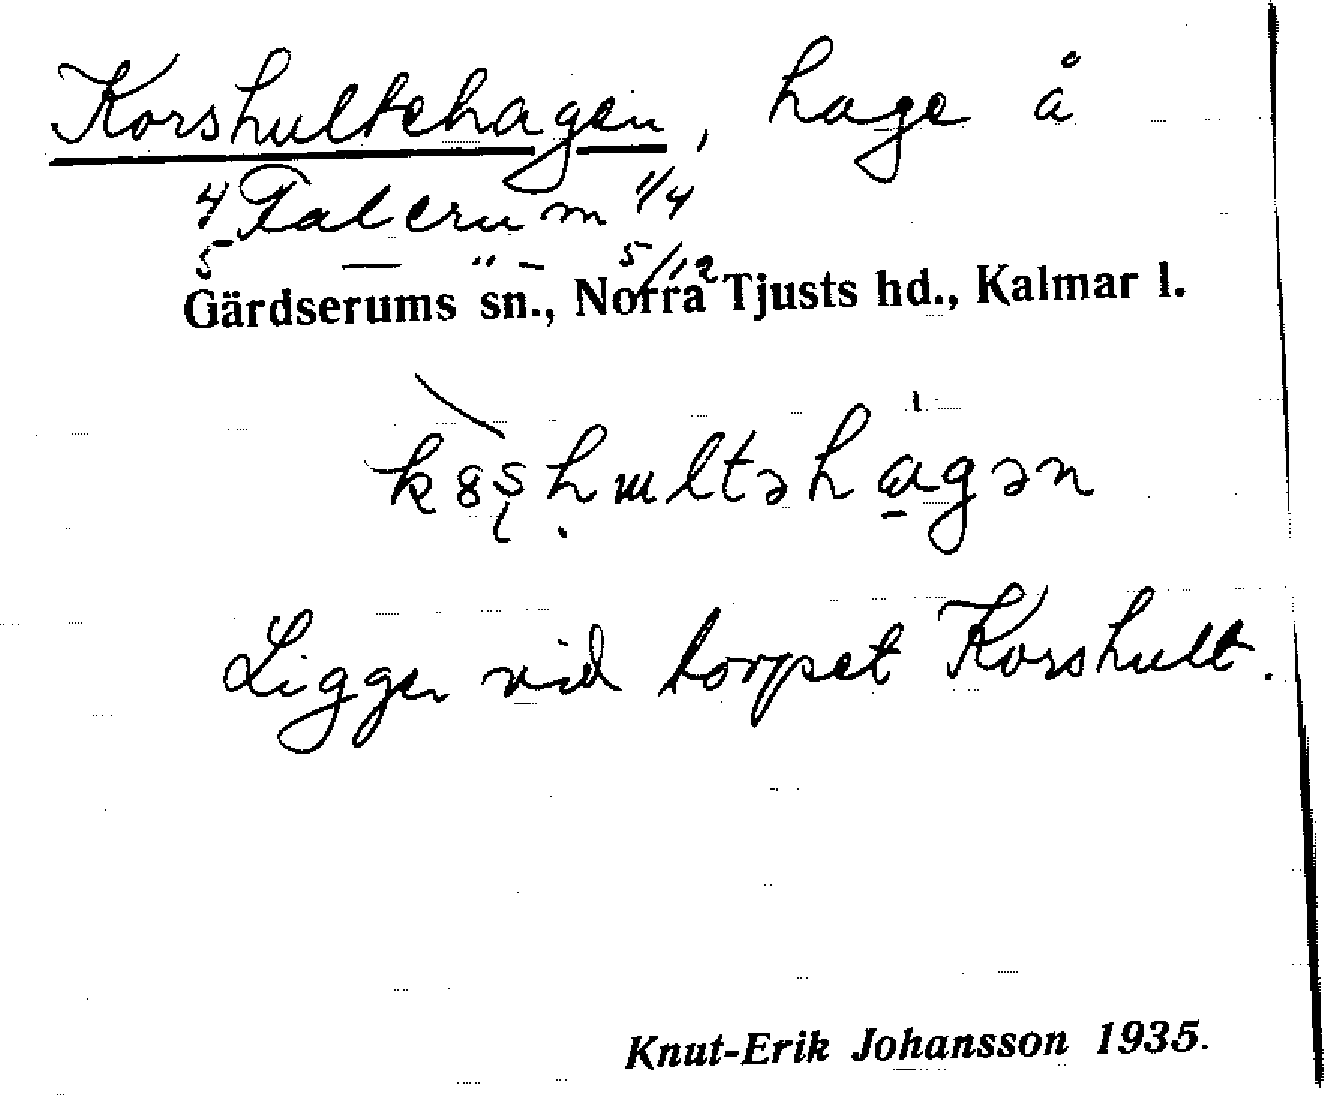 Korshultehagen, hage å
4 Falerum 1/4
5 — " — 5/12
Gärdserums sn., Norra Tjusts hd., Kalmar l.
Ligger vid torpet Korshult.
Knut-Erik Johansson 1935.